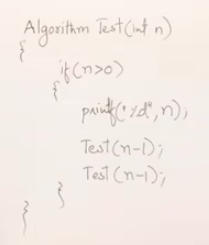 Algorithm Test(int n)
{
if(n>0)
{
printf("%d",n);
Test(n-1);
Test(n-1);
}
}